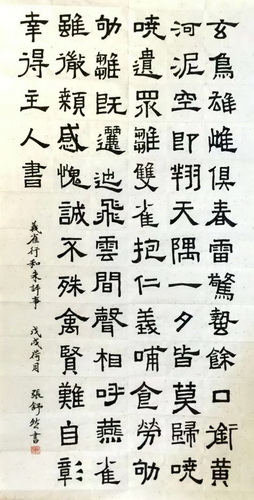 玄鳥雄雌俱春雷驚蟄餘口銜黃
河泥空即翔天隅一夕皆莫歸嘵
嘵遺眾雛雙雀抱仁義哺食勞劬
劬雛既邐迤飛雲間聲相呼燕雀
雖微類感愧誠不殊禽賢難自彰
幸得主人書
義雀行和朱評事 戊戌荷月 張舒書